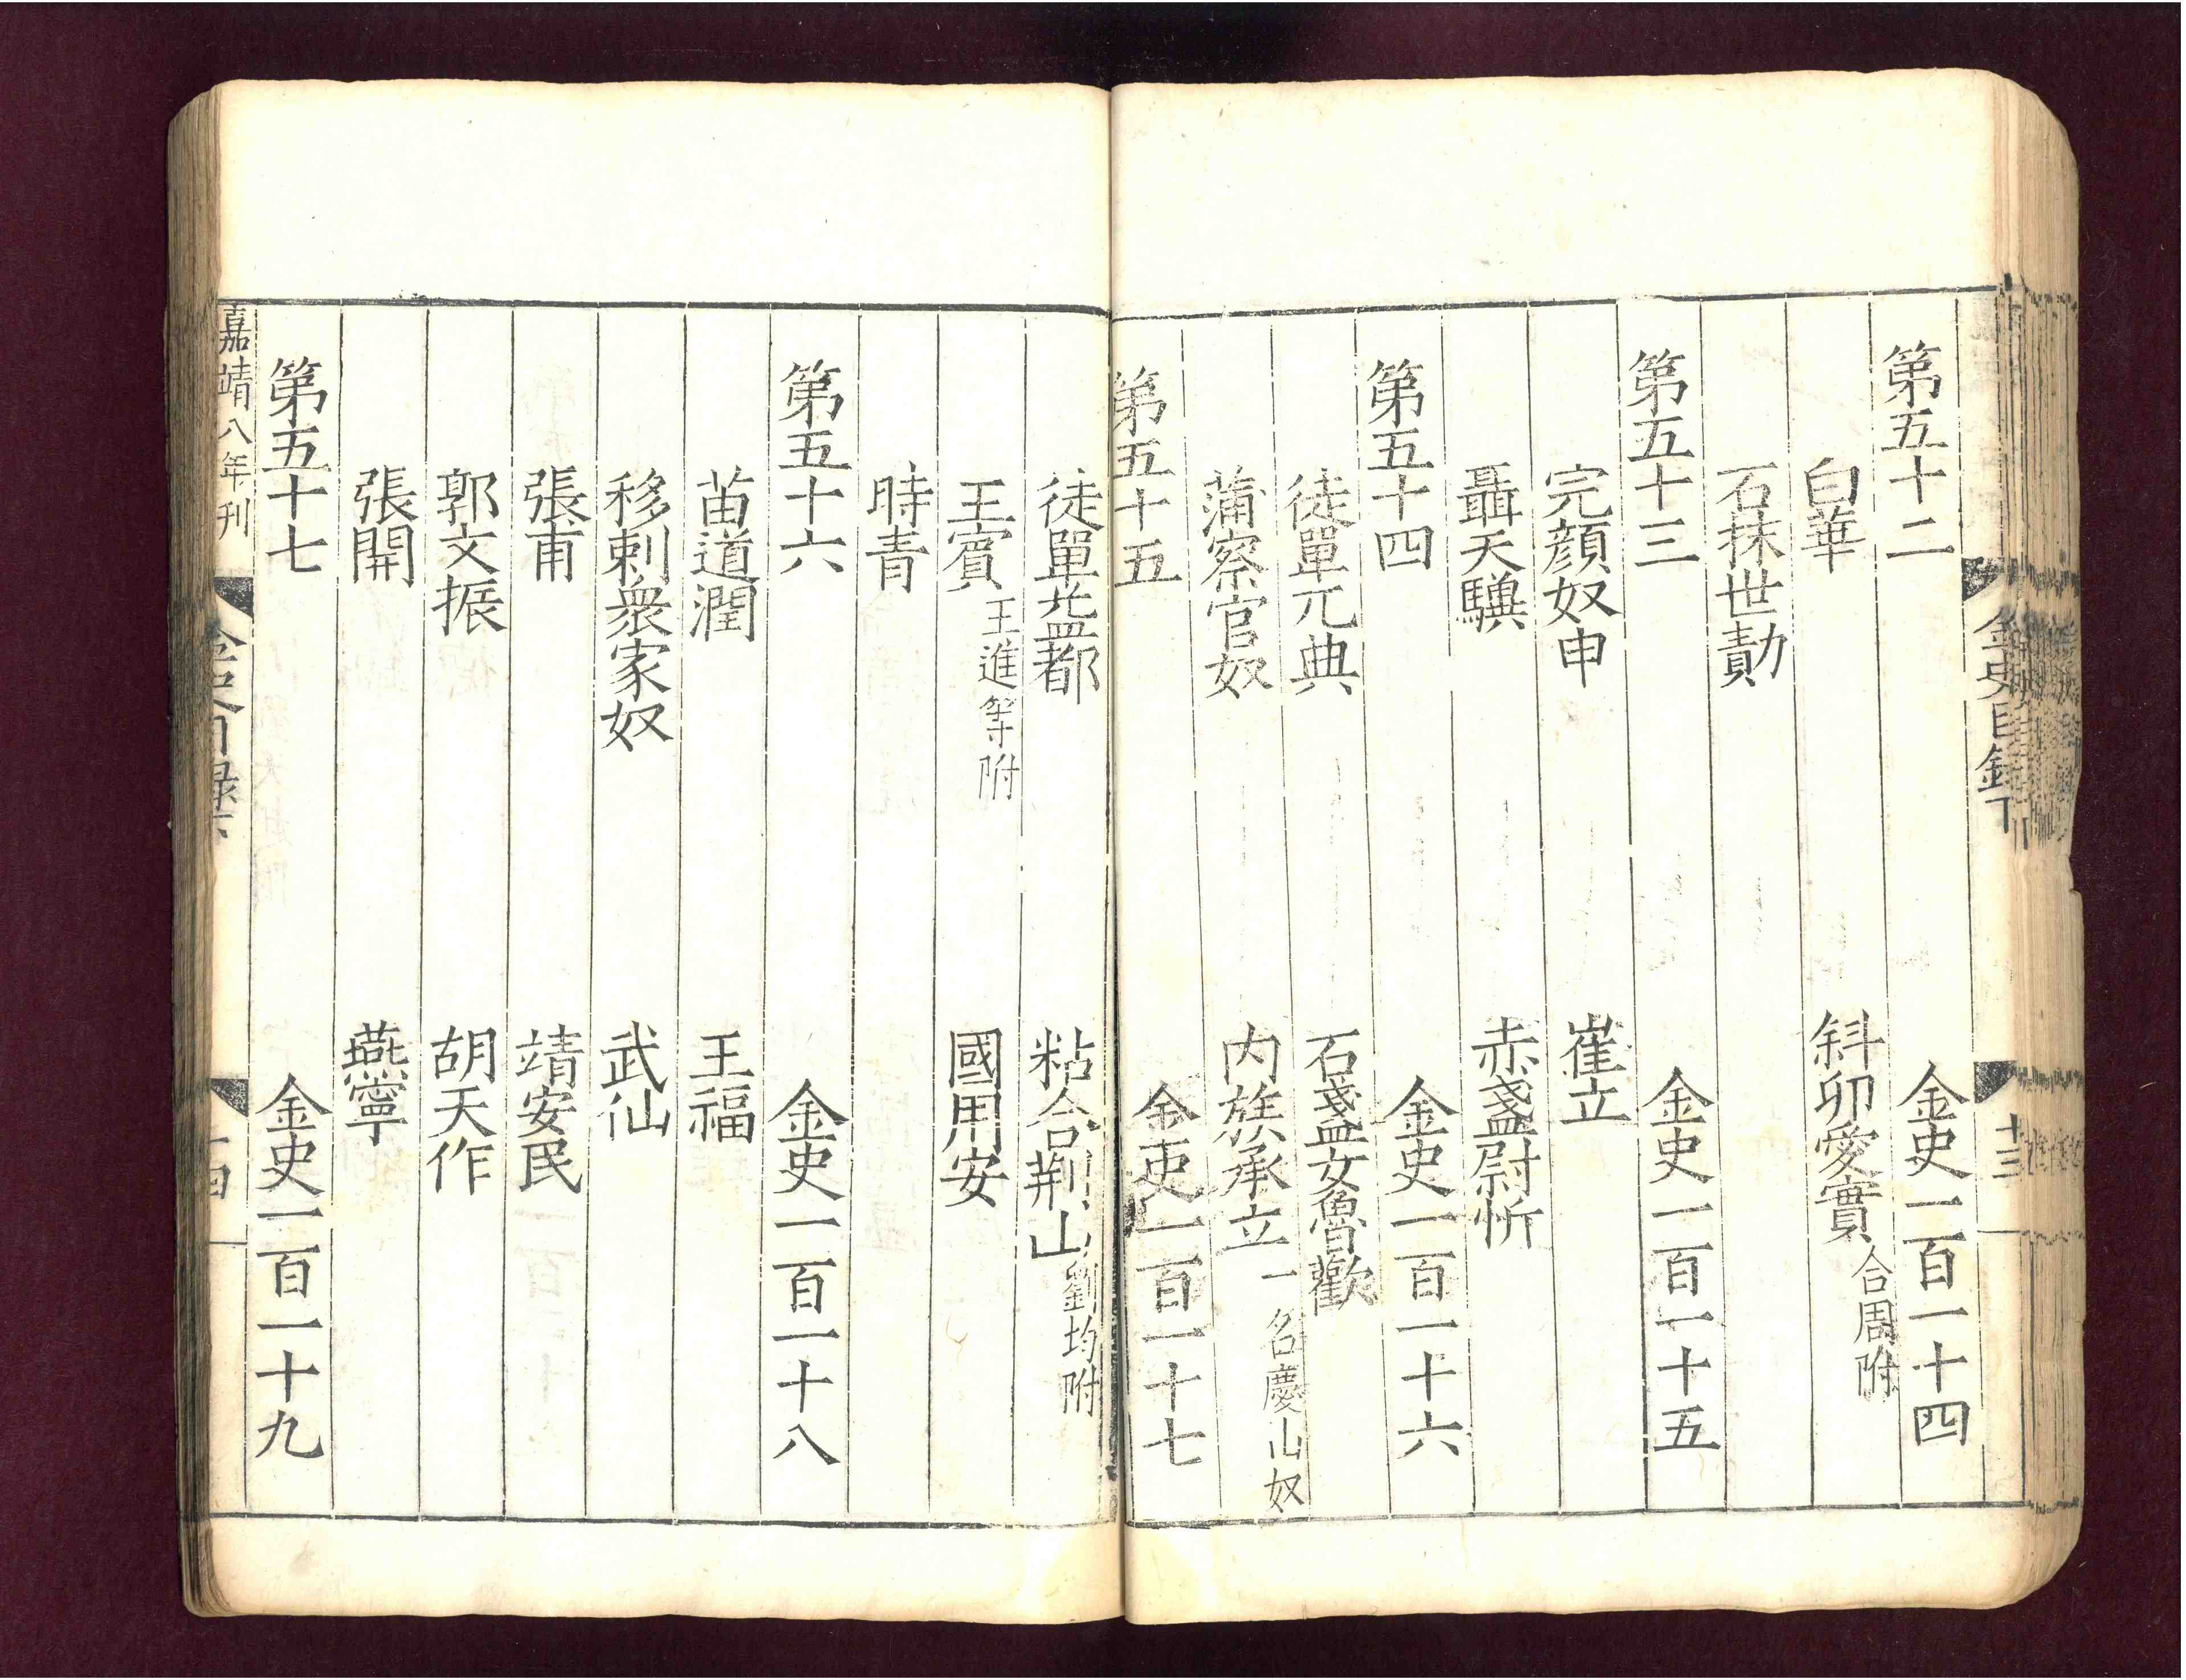 金史目錄下　十三
第五十二　金史一百一十四
白華　斜卯愛實合周附
石抹世勣
第五十三　金史一百一十五
完顔奴申　崔立
聶天驥　赤盞尉忻
第五十四　金史一百一十六
徒單兀典　石盞女魯歡
蒲察官奴　内族承立一名慶山奴
第五十五　金史一百一十七
徒單益都　粘合荆山劉均附
王賓王進等附　國用安
時青
第五十六　金史一百一十八
苗道潤　王福
移剌衆家奴　武仙
張甫　靖安民
郭文振　胡天作
張開　燕寧
第五十七　金史一百一十九
嘉靖八年刊　金史目録下　十四